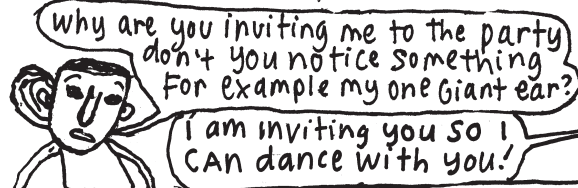 why are you inviting me to the party
don't you notice something
For example my one Giant ear?
I am inviting you so I
CAN dance with you!